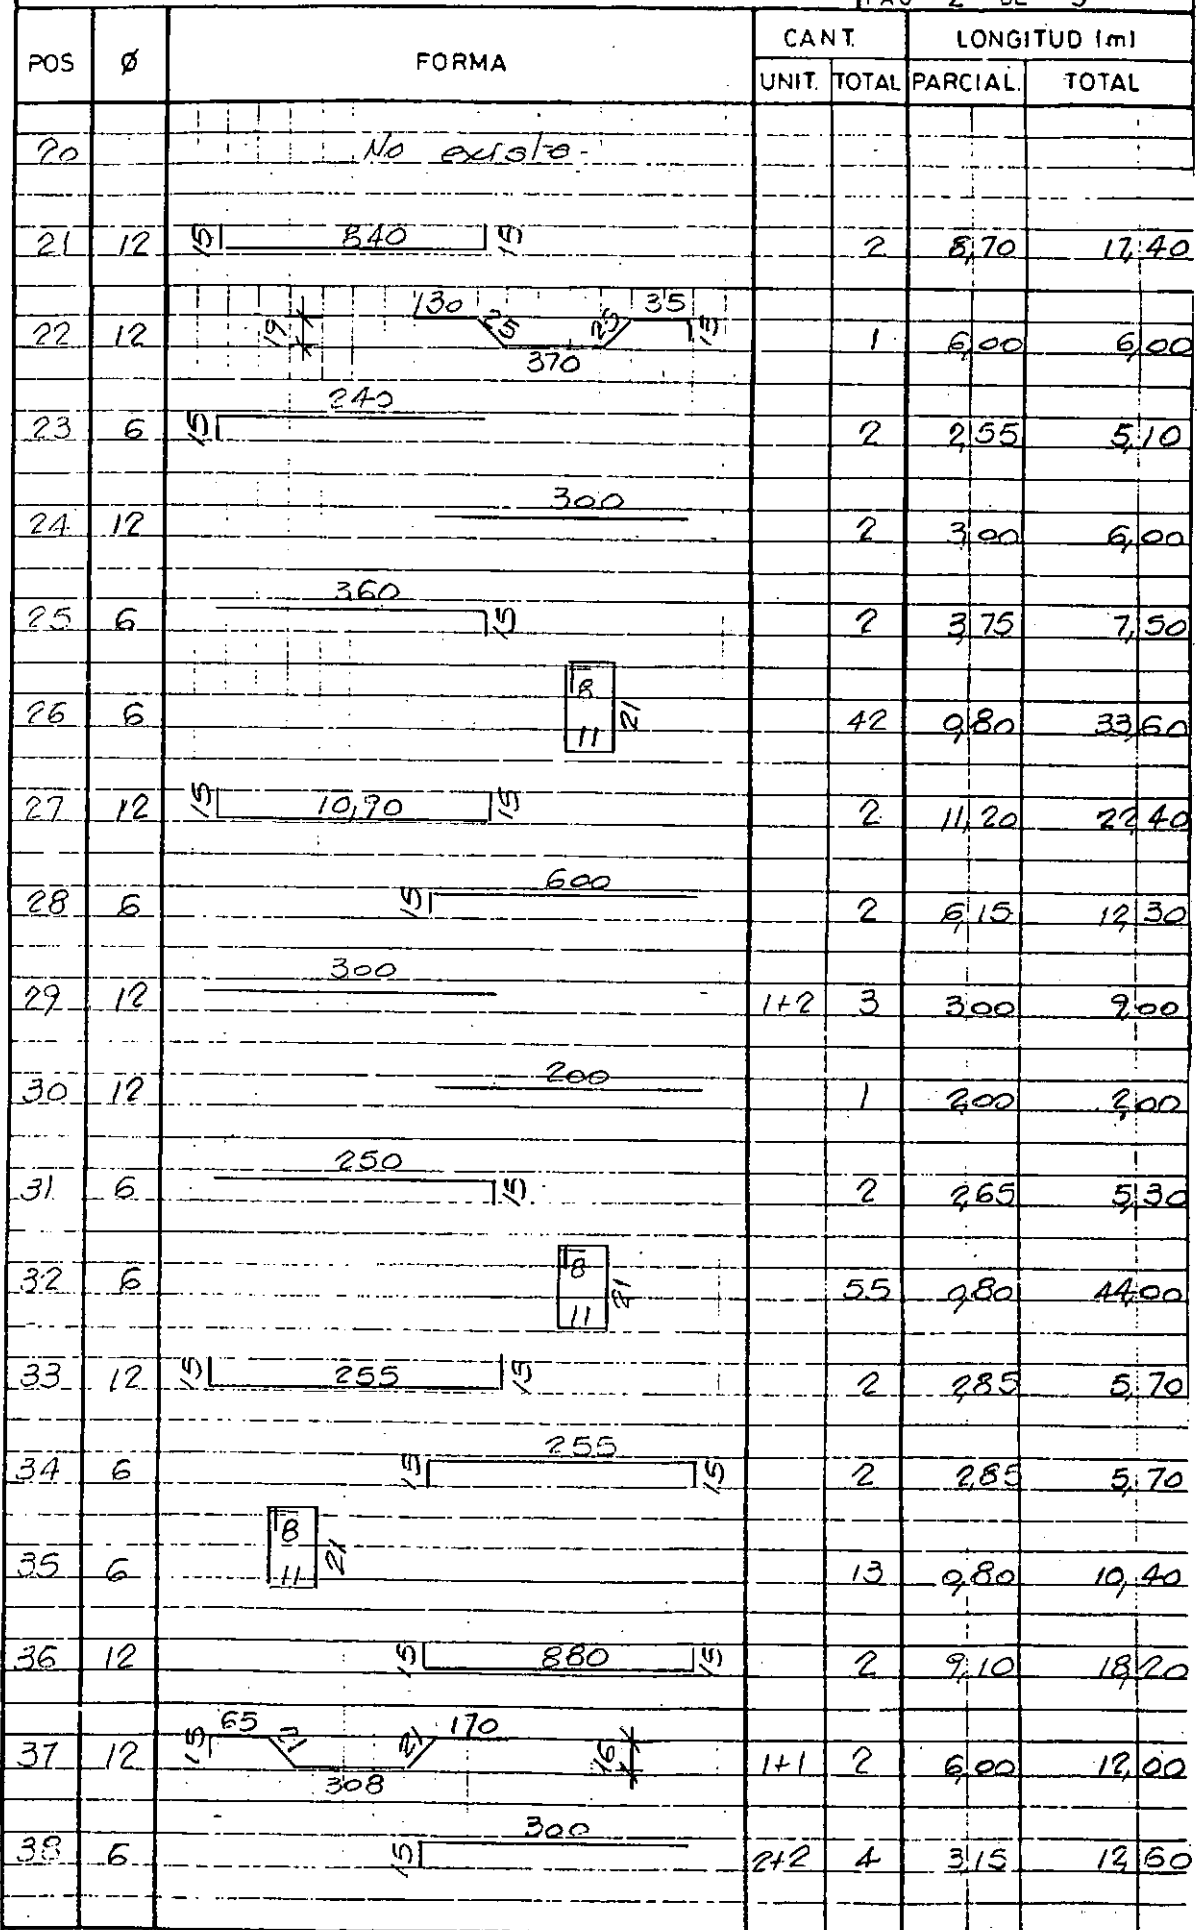 PAG 2 DE 5
POS Ø FORMA CANT. LONGITUD (m)
UNIT. TOTAL PARCIAL. TOTAL
20 No existe
21 12 15 840 15 2 8,70 17,40
22 12 19 130 25 370 25 35 15 1 6,00 6,00
23 6 15 240 2 2,55 5,10
24 12 300 2 3,00 6,00
25 6 360 15 2 3,75 7,50
26 6 8 11 21 42 0,80 33,60
27 12 15 10,90 15 2 11,20 22,40
28 6 15 600 2 6,15 12,30
29 12 300 1+2 3 3,00 9,00
30 12 200 1 2,00 2,00
31 6 250 15 2 2,65 5,30
32 6 8 11 21 55 0,80 44,00
33 12 15 255 15 2 2,85 5,70
34 6 15 255 15 2 2,85 5,70
35 6 8 11 21 13 0,80 10,40
36 12 15 880 15 2 9,10 18,20
37 12 15 65 21 308 21 170 16 1+1 2 6,00 12,00
38 6 15 300 2+2 4 3,15 12,60